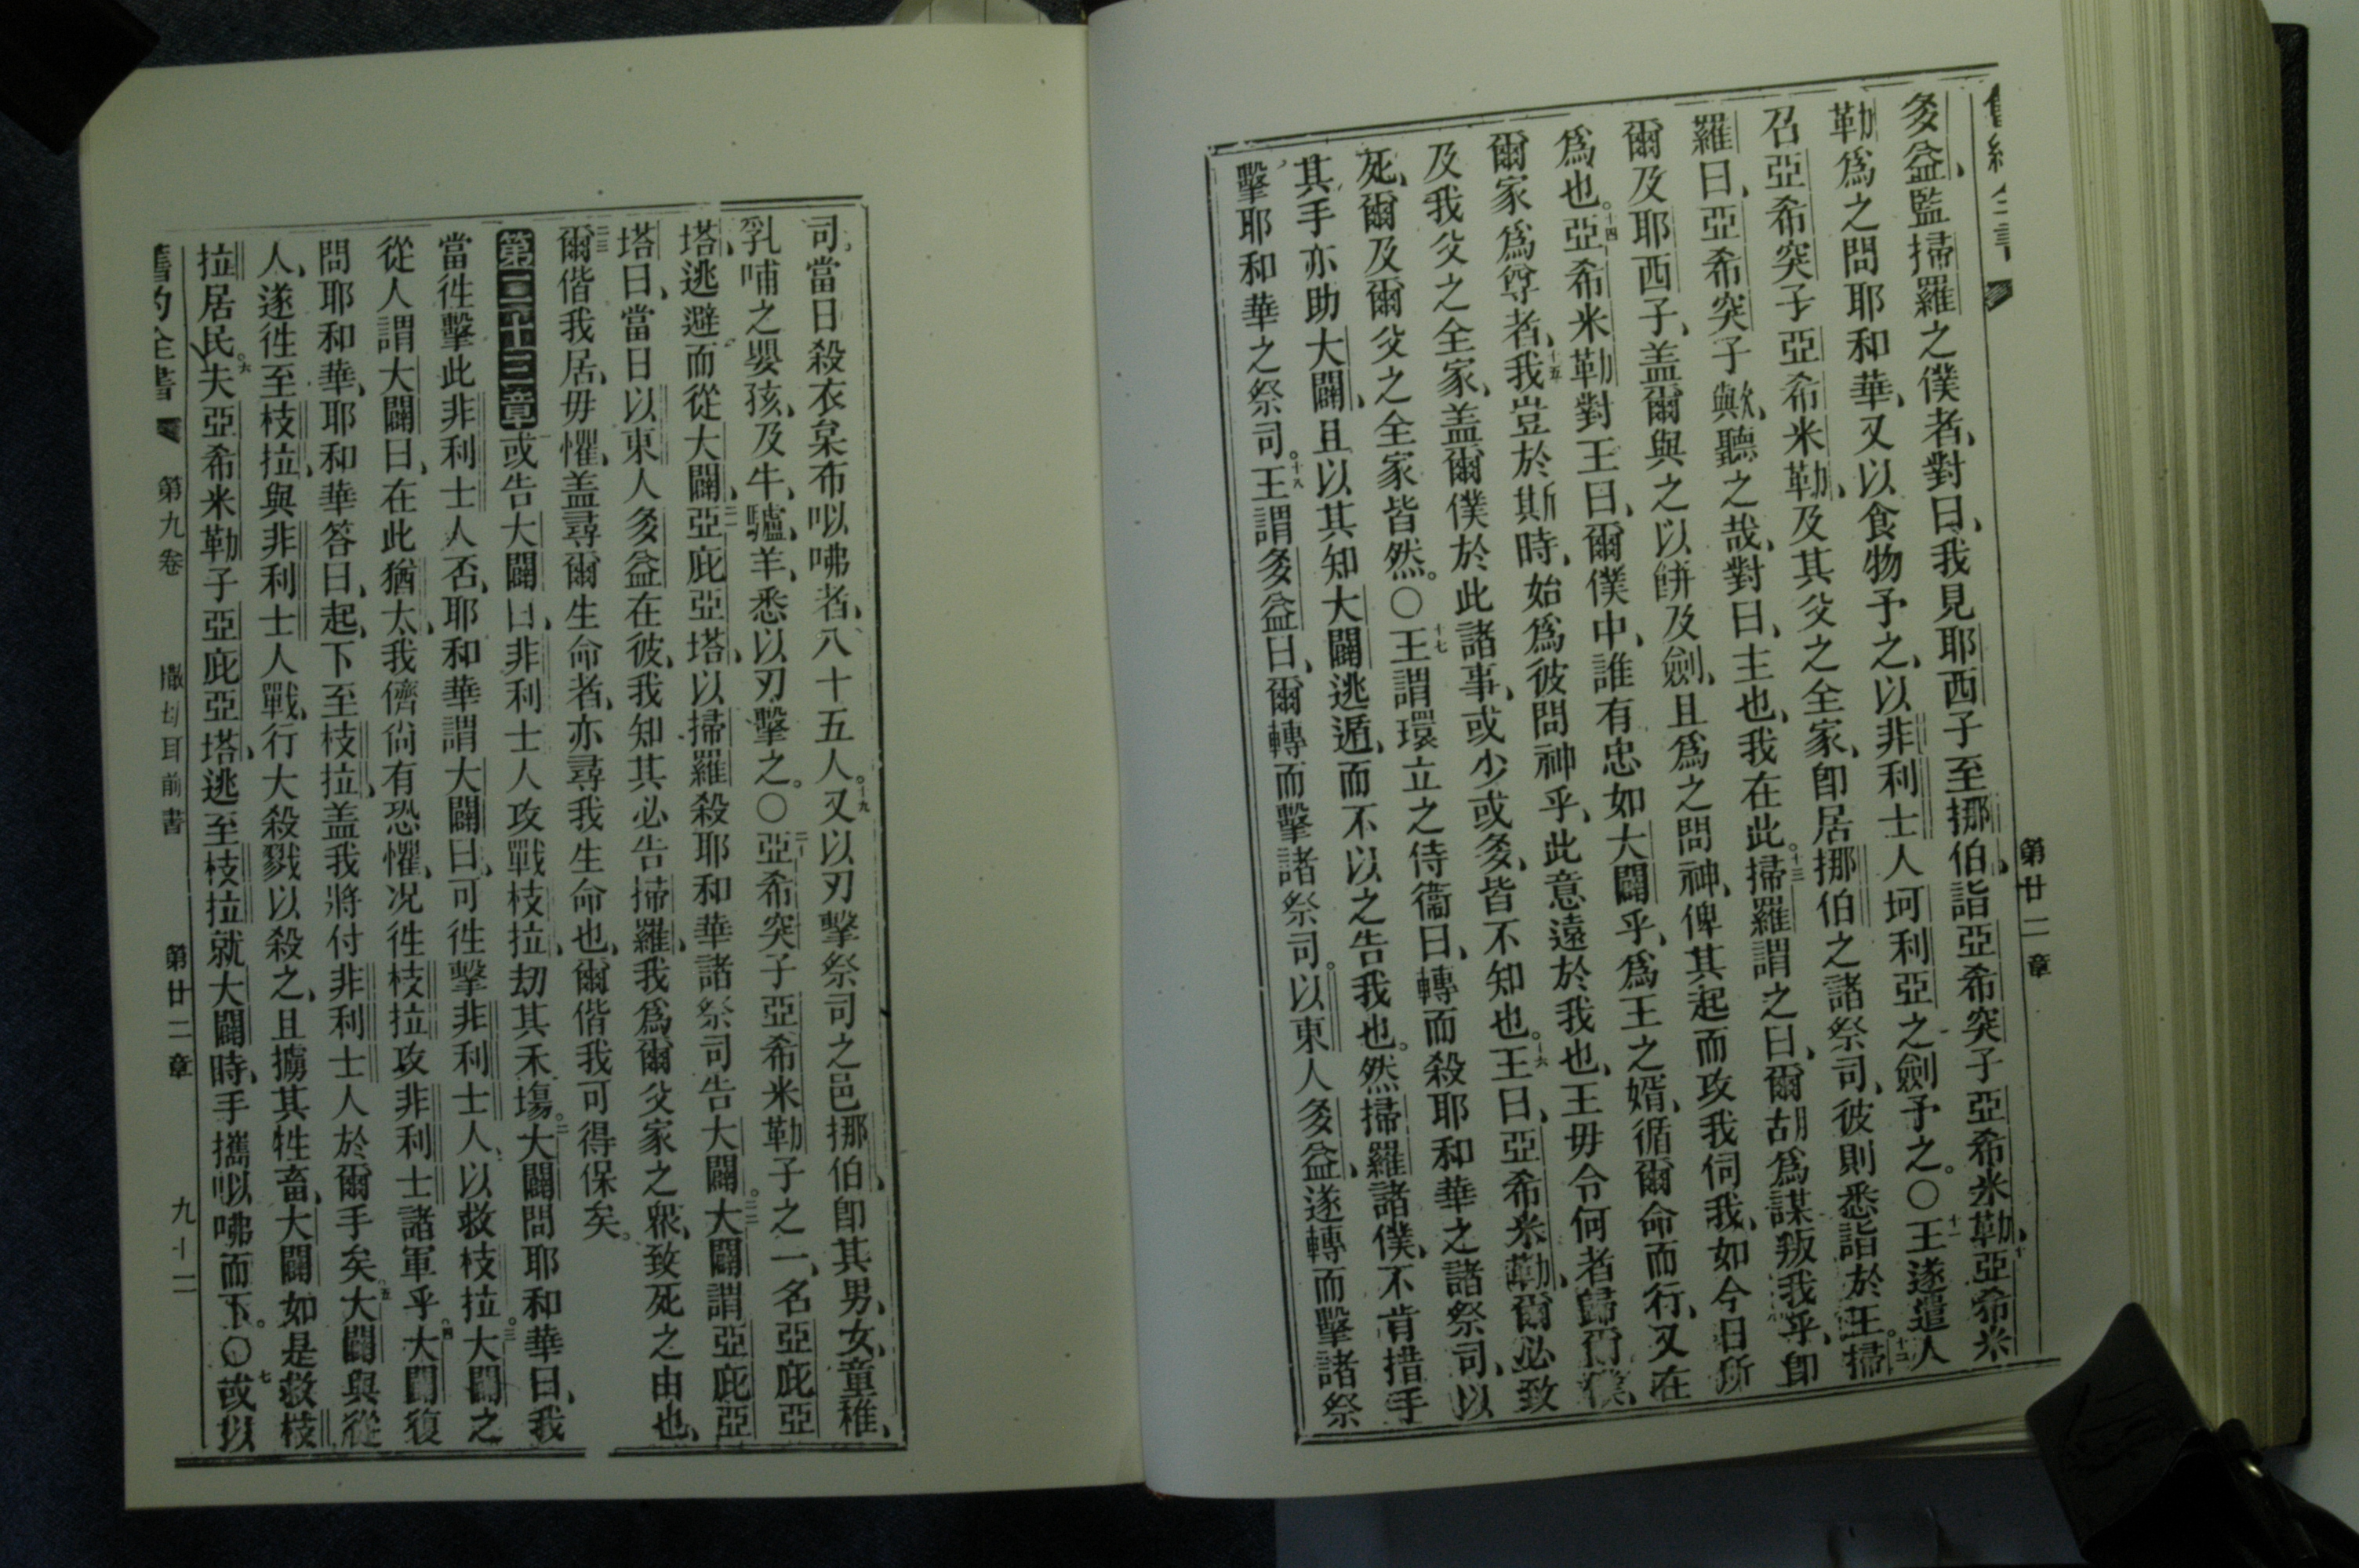 第廿二章
多益監掃羅之僕者、對曰、我見耶西子至挪伯、詣亞希突子亞希米勒、十亞希米
勒爲之問耶和華、又以食物予之、以非利士人坷利亞之劍予之。〇十一王遂遣人
召亞希突子亞希米勒、及其父之全家、卽居挪伯之諸祭司、彼則悉詣於王。十二掃
羅曰、亞希突子歟、聽之哉、對曰、主也、我在此。十三掃羅謂之曰、爾胡爲謀叛我乎、卽
爾及耶西子、盖爾與之以餅及劍、且爲之問神、俾其起而攻我伺我、如今日所
爲也。十四亞希米勒對王曰、爾僕中、誰有忠如大闢乎、爲王之婿、循爾命而行、又在
爾家爲尊者、十五我豈於斯時、始爲彼問神乎、此意遠於我也、王毋令何者歸爾僕、
及我父之全家、盖爾僕於此諸事、或少或多、皆不知也。十六王曰、亞希米勒、爾必致
死、爾及爾父之全家皆然。〇十七王謂環立之侍衞曰、轉而殺耶和華之諸祭司、以
其手亦助大闢、且以其知大闢逃遁、而不以之告我也。然掃羅諸僕、不肯措手
擊耶和華之祭司。十八王謂多益曰、爾轉而擊諸祭司。以東人多益、遂轉而擊諸祭
司。當日殺衣枲布㕥咈者、八十五人。十九又以刃擊祭司之邑挪伯、卽其男、女、童稚、
乳哺之嬰孩、及牛、驢、羊、悉以刃擊之。〇二十亞希突子亞希米勒子之一、名亞庇亞
塔、逃避而從大闢、二一亞庇亞塔、以掃羅殺耶和華諸祭司告大闢。二二大闢謂亞庇亞
塔曰、當日以東人多益在彼、我知其必告掃羅、我爲爾父家之衆、致死之由也、
二三爾偕我居、毋懼、盖尋爾生命者、亦尋我生命也、爾偕我可得保矣。
第二十三章或告大闢曰、非利士人攻戰枝拉、刧其禾塲。二大闢問耶和華曰、我
當徃擊此非利士人否、耶和華謂大闢曰、可徃擊非利士人、以救枝拉。三大闢之
從人謂大闢曰、在此猶太、我儕尙有恐懼、况徃枝拉攻非利士諸軍乎、四大闢復
問耶和華、耶和華答曰、起、下至枝拉、盖我將付非利士人於爾手矣。五大闢與從
人、遂徃至枝拉、與非利士人戰、行大殺戮以殺之、且擄其牲畜、大闢如是救枝
拉居民。六夫亞希米勒子亞庇亞塔、逃至枝拉就大闢時、手攜㕥咈而下。〇七或以
舊約全書 第九卷 撒母耳前書 第廿二章 九十二